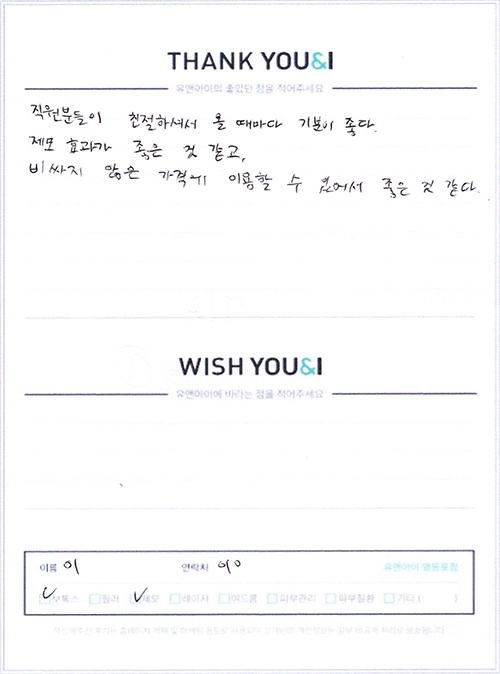 THANK YOU&I
유앤아이의 좋았던 점을 적어주세요
직원분들이 친절하셔서 올 때마다 기분이 좋다.
제모 효과가 좋은 것 같고,
비싸지 않은 가격에 이용할 수 있어서 좋은 것 같다.
WISH YOU&I
유앤아이에 바라는 점을 적어주세요
이름 이 연락처 010 유앤아이 영등포점
보톡스 필러 제모 레이저 여드름 피부관리 피부질환 기타 ( )